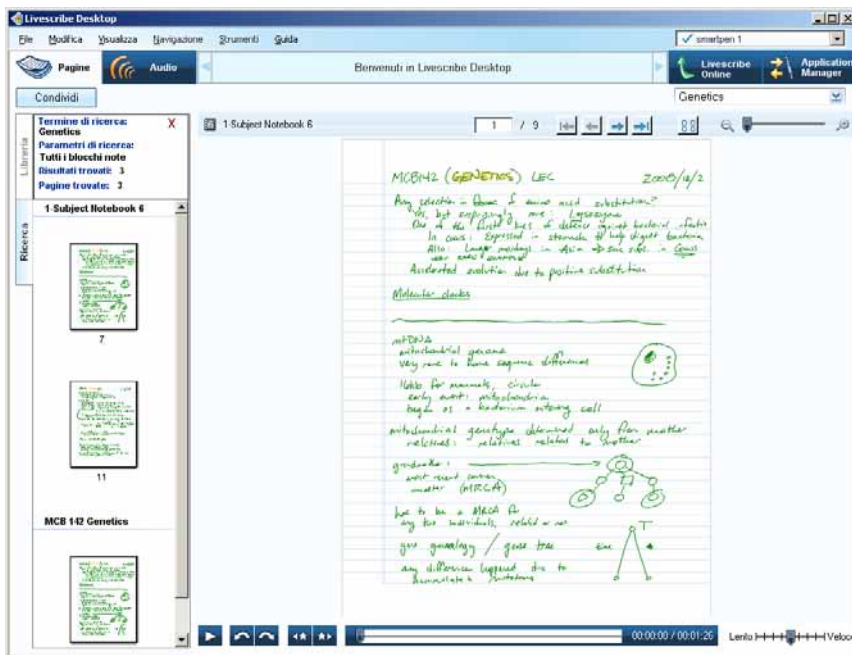 Livescribe Desktop
File Modifica Visualizza Navigazione Strumenti Guida
smartpen 1
Pagine
Audio
Benvenuti in Livescribe Desktop
Livescribe Online
Application Manager
Condividi
Genetics
Libreria
Ricerca
Termine di ricerca: X
Genetics
Parametri di ricerca:
Tutti i blocchi note
Risultati trovati: 3
Pagine trovate: 3
1-Subject Notebook 6
7
11
MCB 142 Genetics
1-Subject Notebook 6
1 / 9
MCB142 (GENETICS) LEC 2008/12/2
Any selection in of amino acid substitution?
Yes, but surprisingly rare: Lysozyme
One of the first lines of defense against bacterial
In cows: Expressed in stomach to help digest bacteria
Also: Langur monkeys in Asia same subs. in Cows
Accelerated evolution due to positive substitution
Molecular clocks
mtDNA
mitochondrial genome
very rare to have sequence differences
16kb for mammals, circular
early event: mitochondria
began as a bacterium entering cell
mitochondrial genotype determined only from mother
relatives: relatives related to mother
grandmother:
most recent common
mother (MRCA)
have to be a MRCA for
any two individuals, related or not
gene genealogy / gene tree
time T
any differences happened due to
accumulated mutations
00:00:00 / 00:01:26
Lento
Veloce